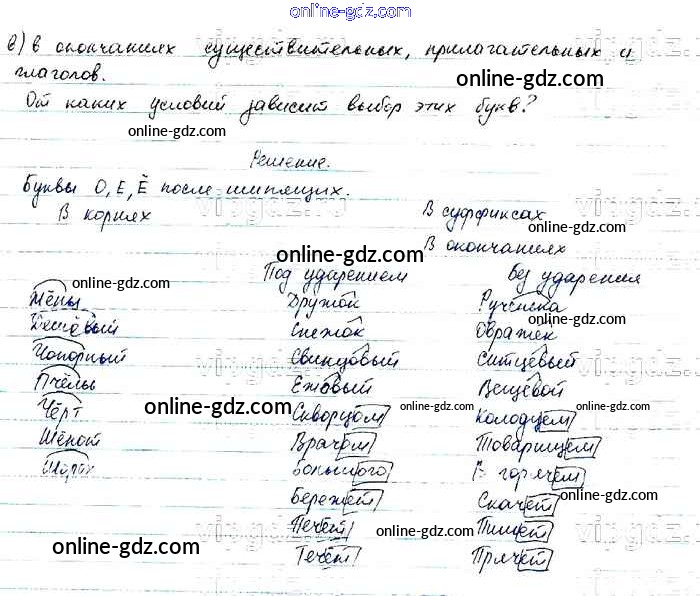 в) в окончаниях существительных, прилагательных и
глаголов.
От каких условий зависит выбор этих букв?
Решение.
Буквы О, Е, Ё после шипящих.
В корнях В суффиксах
В окончаниях
Под ударением Без ударения
Жёны Дружок Ручонка
Дешёвый Снежок Овражек
Чопорный Свинцовый Ситцевый
Пчёлы Ежовый Вещевой
Чёрт Скворцом Колодцем
Шёпот Врачом Товарищем
Шорох Большого В горячем
Бережёт Скачет
Печёт Пишет
Течёт Прячет
online-gdz.com
online-gdz.com
online-gdz.com
online-gdz.com
online-gdz.com
online-gdz.com
online-gdz.com
online-gdz.com
online-gdz.com
online-gdz.com
online-gdz.com
online-gdz.com
online-gdz.com
online-gdz.com